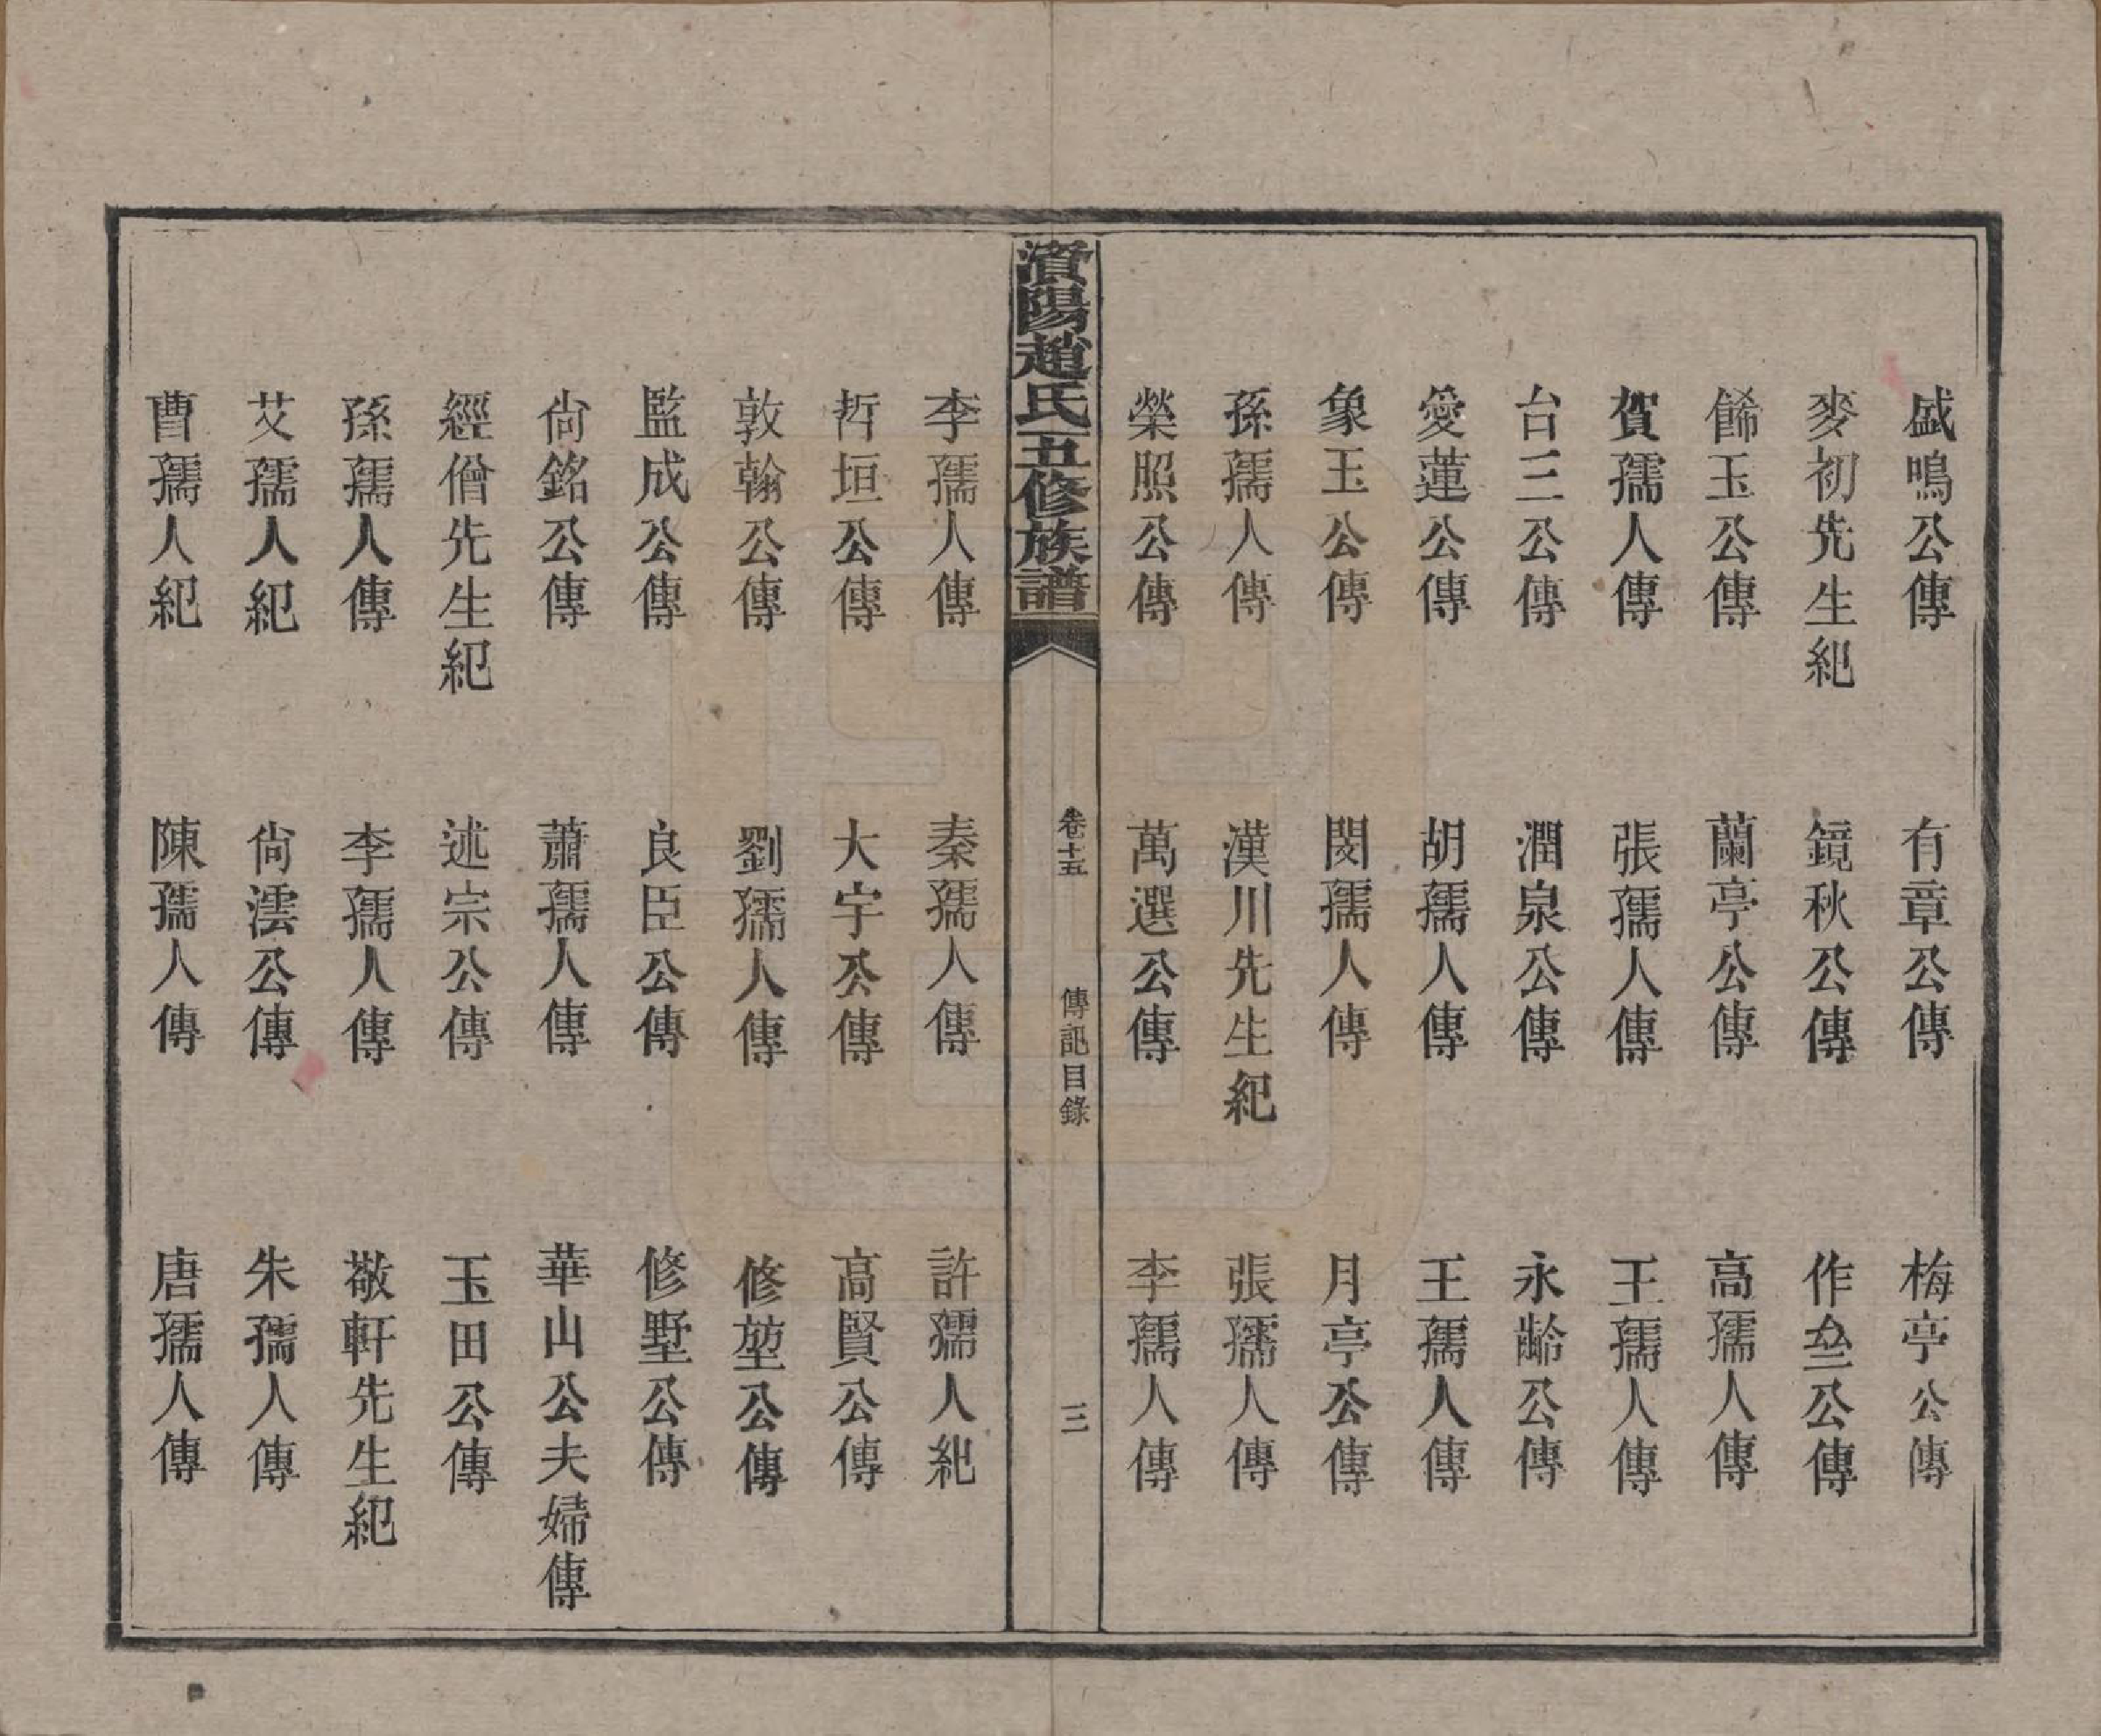 盛鳴公傳　有章公傳　梅亭公傳
麥初先生紀　鏡秋公傳　作叁公傳
餙玉公傳　蘭亭公傳　高孺人傳
賀孺人傳　張孺人傳　王孺人傳
台三公傳　潤泉公傳　永齡公傳
愛蓮公傳　胡孺人傳　王孺人傳
象玉公傳　閔孺人傳　月亭公傳
孫孺人傳　漢川先生紀　張孺人傳
榮照公傳　萬選公傳　李孺人傳
濱陽趙氏五修族譜　卷十五　傳記目錄　三
李孺人傳　秦孺人傳　許孺人紀
哲垣公傳　大宇公傳　高賢公傳
敦翰公傳　劉孺人傳　修堃公傳
監成公傳　良臣公傳　修墅公傳
尙銘公傳　蕭孺人傳　華山公夫婦傳
經僧先生紀　述宗公傳　玉田公傳
孫孺人傳　李孺人傳　敬軒先生紀
艾孺人紀　尙澐公傳　朱孺人傳
曹孺人紀　陳孺人傳　唐孺人傳